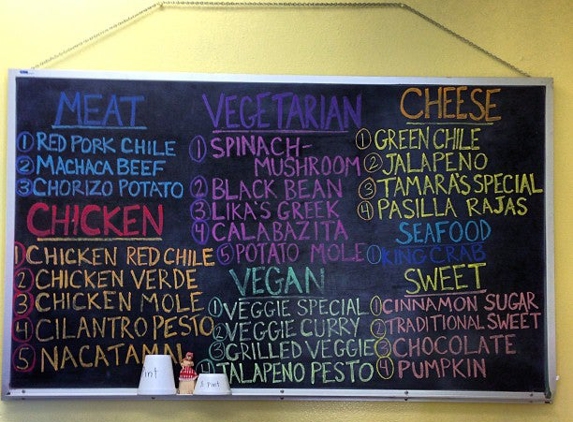 MEAT
① RED PORK CHILE
② MACHACA BEEF
③ CHORIZO POTATO
CHICKEN
① CHICKEN RED CHILE
② CHICKEN VERDE
③ CHICKEN MOLE
④ CILANTRO PESTO
⑤ NACATAMAL
VEGETARIAN
① SPINACH-
MUSHROOM
② BLACK BEAN
③ LIKA'S GREEK
④ CALABAZITA
⑤ POTATO MOLE
VEGAN
① VEGGIE SPECIAL
② VEGGIE CURRY
③ GRILLED VEGGIE
④ JALAPENO PESTO
CHEESE
① GREEN CHILE
② JALAPENO
③ TAMARA'S SPECIAL
④ PASILLA RAJAS
SEAFOOD
① KING CRAB
SWEET
① CINNAMON SUGAR
② TRADITIONAL SWEET
③ CHOCOLATE
④ PUMPKIN